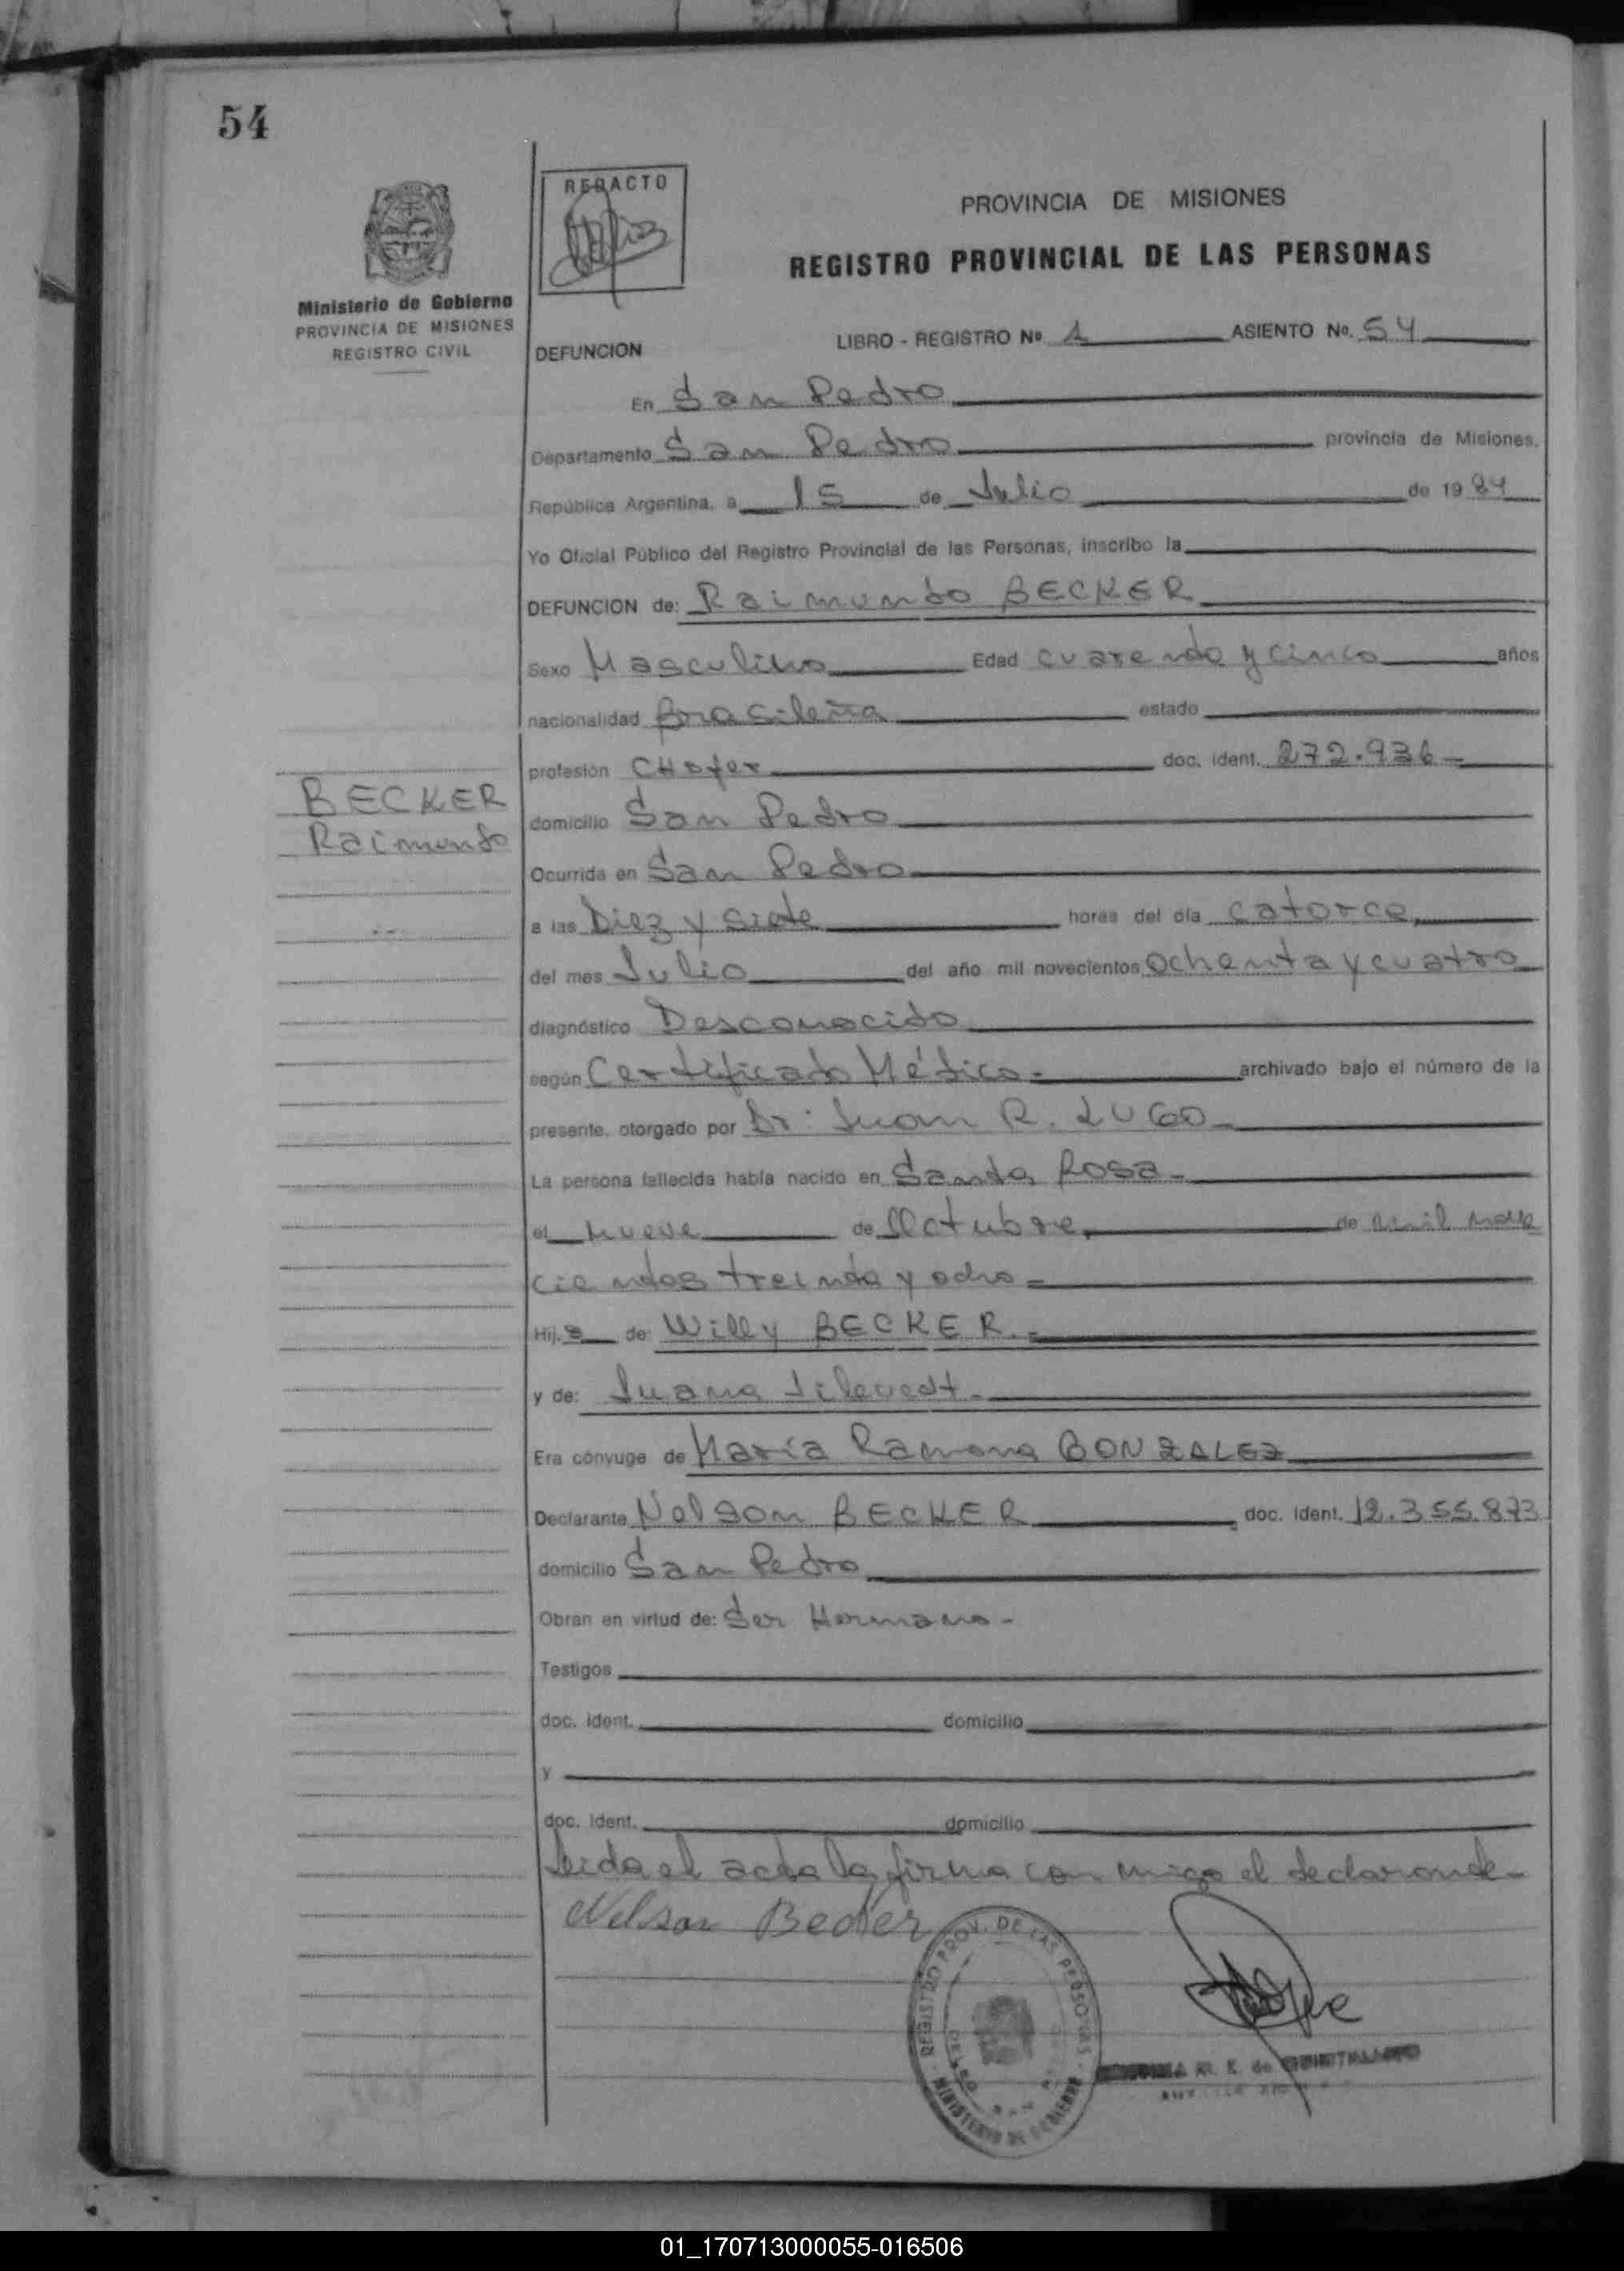 54
REDACTO
Ministerio de Gobierno
PROVINCIA DE MISIONES
REGISTRO CIVIL
PROVINCIA DE MISIONES
REGISTRO PROVINCIAL DE LAS PERSONAS
DEFUNCION LIBRO - REGISTRO Nº 1 ASIENTO Nº. 54
En San Pedro
Departamento San Pedro provincia de Misiones.
República Argentina, a 15 de Julio de 1984
Yo Oficial Público del Registro Provincial de las Personas, inscribo la
DEFUNCION de: Raimundo BECKER
Sexo Masculino Edad cuarenta y cinco años
nacionalidad Brasileña estado
profesión CHofer doc. ident. 272.936
BECKER
Raimundo
domicilio San Pedro
Ocurrida en San Pedro
a las Diez y siete horas del día catorce
del mes Julio del año mil novecientos ochenta y cuatro
diagnóstico Desconocido
según Certificado Médico.- archivado bajo el número de la
presente, otorgado por Dr: Juan R. LUGO
La persona fallecida había nacido en Santa Rosa-
el nueve de Octubre de mil nove
cientos treinta y ocho
Hij o de: Willy BECKER.
y de: Juana
Era cónyuge de María Ramona GONZALEZ
Declarante Nelson BECKER doc. ident. 12.355.873
domicilio San Pedro
Obran en virtud de: Ser Hermano-
Testigos
doc. ident. domicilio
y
doc. ident. domicilio
Leida el acta la firma con migo el declarante-
Nelson Becker
REGISTRO PROV. DE LAS PERSONAS
MINISTERIO DE GOBIERNO
01_170713000055-016506